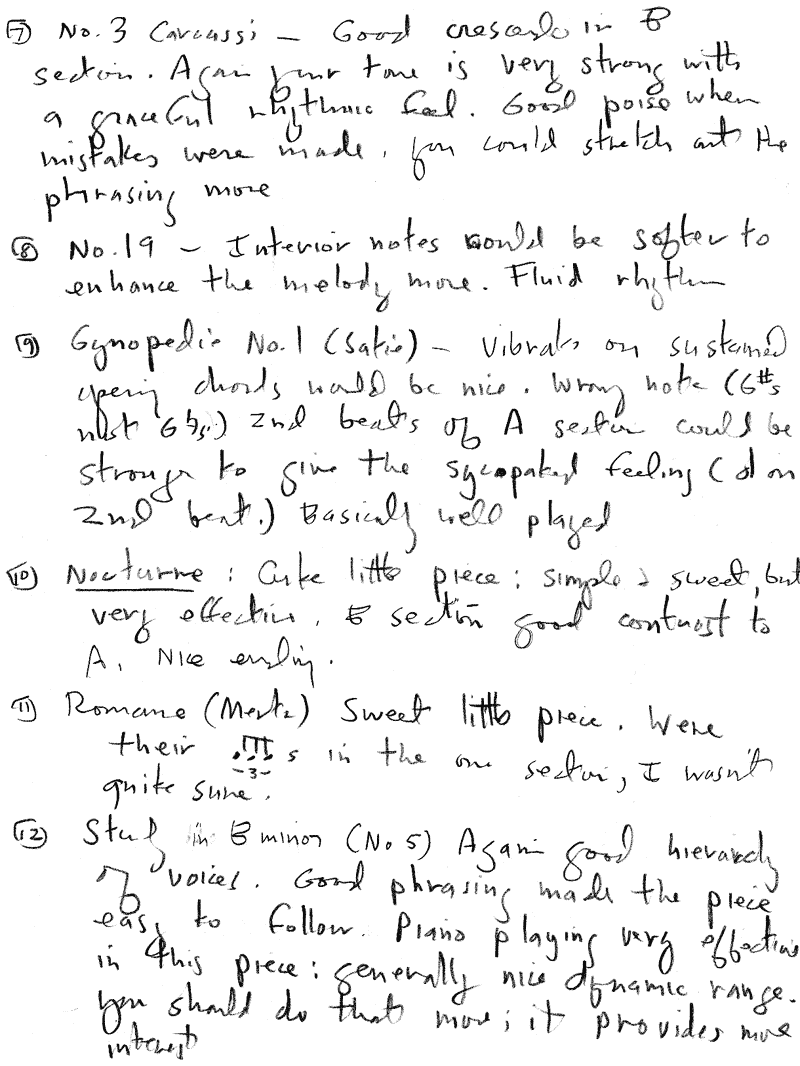 ⑦ No. 3 Carcassi – Good crescendo in B
section. Again your tone is very strong with
a graceful rhythmic feel. Good poise when
mistakes were made. you could stretch out the
phrasing more
⑧ No. 19 – Interior notes could be softer to
enhance the melody more. Fluid rhythm
⑨ Gynopedie No. 1 (Satie) – Vibrato on sustained
opening chords would be nice. Wrong note (G#s
not G♮s.) 2nd beats of A section could be
stronger to give the sycopated feeling (d on
2nd beat.) Basically well played
⑩ Nocturne: Cute little piece: simple & sweet, but
very effective. B section good contrast to
A. Nice ending.
⑪ Romance (Mertz) Sweet little piece. Were
their ♪♪♪s in the one section, I wasn't
-3-
quite sure.
⑫ Study in B minor (No 5) Again good hierarchy
of voices. Good phrasing made the piece
easy to follow. Piano playing very effective
in this piece: generally nice dynamic range.
you should do that more; it provides more
interest